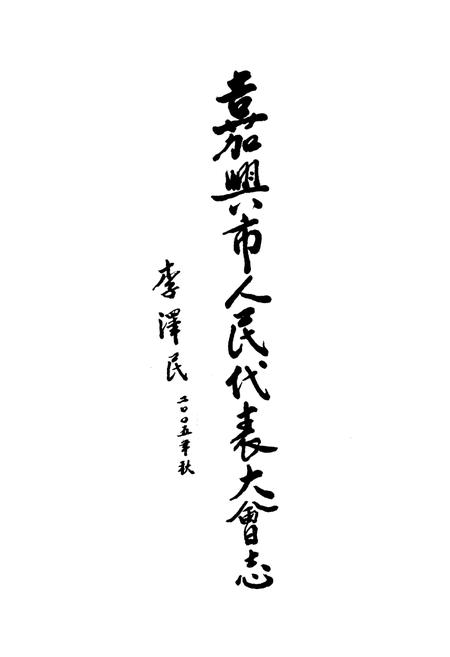 嘉興市人民代表大會志
李澤民
二〇〇五年秋